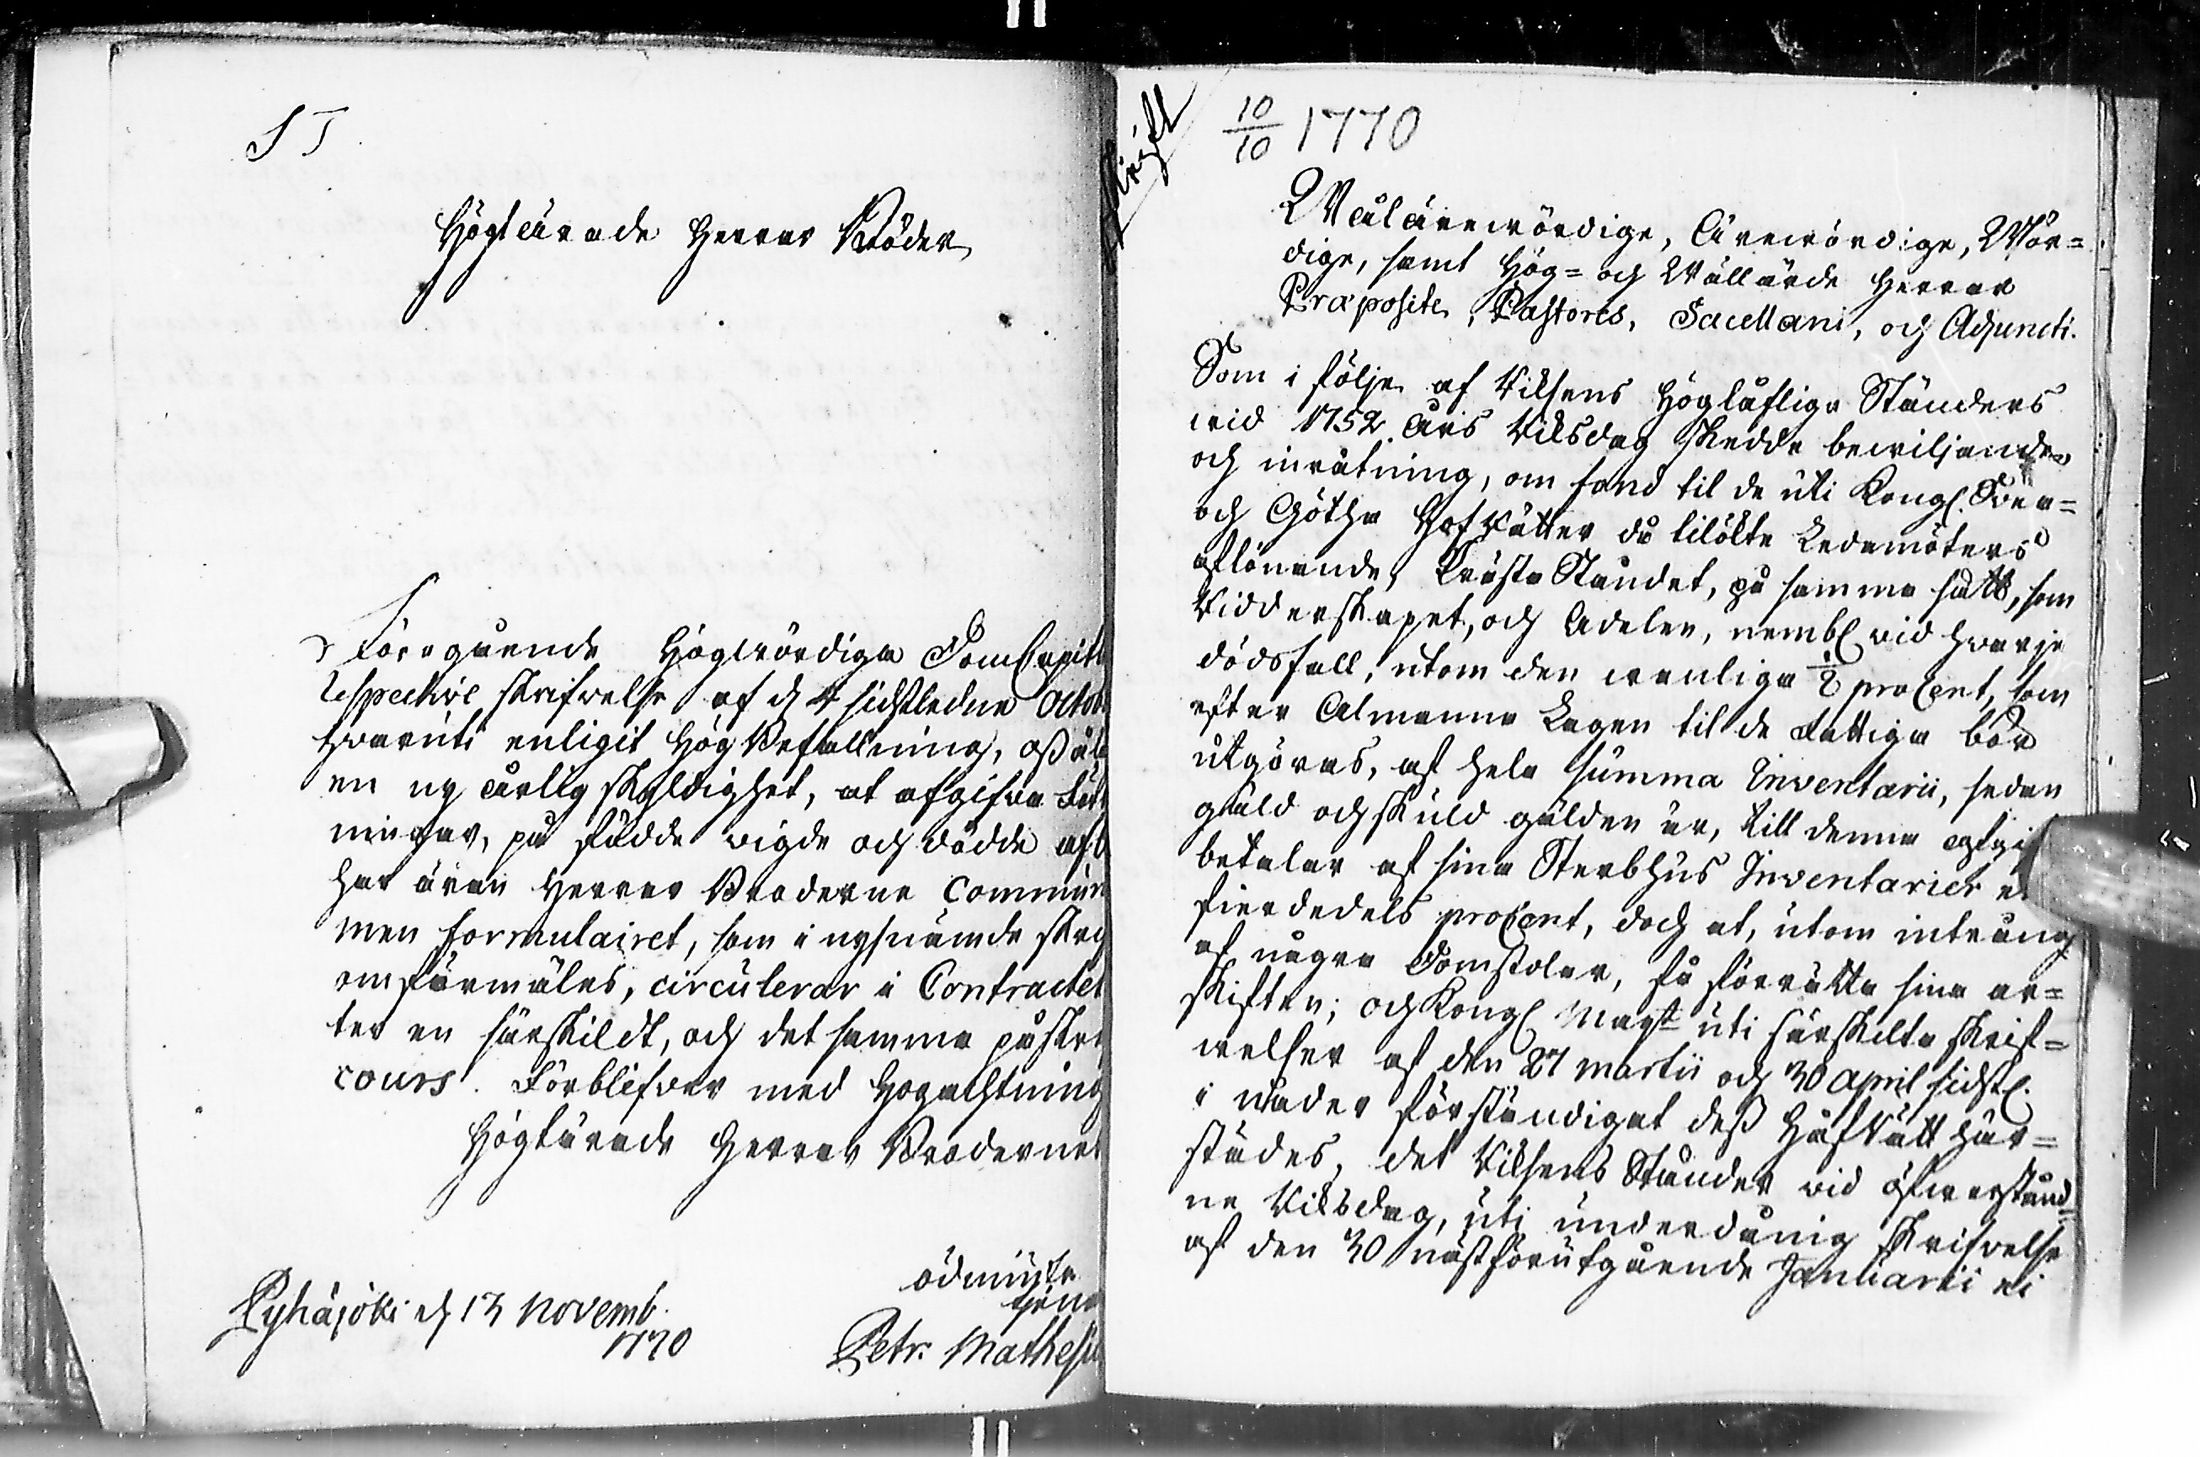 S T
Höglärade Herrar Bröder
Föregående Högwördiga DomCapit
Respective skrifwelse af d 4 sidstledne Octob
hwaruti enligit Hög Befallning, oß ål
en ny årlig skyldighet, at afgifwa
ningar, på födde wigde och dödde
har äran Herrar Bröderne commun
men formulairet, som i nysnämde
omförmäles, circulerar i Contractet
ter en särskildt, och det samma påskri
cours. Förblifwer med Högachtning
Höglärade Herrar Brödernes
ödmiuke
tjena
Pyhäjoki d 13 Novemb.
1770
Petr. Mathesiu
skrift
10/10 1770
Wälärewördige, Ärewördige, Wör=
dige, samt Hög= och Wällärde Herrar
Præposite, Pastores, Sacellani, och Adjuncti.
Som i följe af Riksens Höglåflige Ständers
wid 1752 Års Riksdag skedde bewiljande
och inrätning, om fond til de uti Kongl. Swea=
och Götha HofRätter då tilökte Ledamöters
aflönande, PrästeStåndet, på samma sätt, som
Ridderskapet, och Adelen, nembl wid hwarje
dödsfall, utom den wanliga 1/8 procent, som
efter Almänna Lagen til de Fattiga bör
utgöras, af hela summa Inventarii, sedan
gäld och skuld gulden är, till denna afgif
betalar af sina Sterbhus Inventarier e
fierdedels procent, doch at, utom intrång
af några Domstolar, få förrätta sina ar=
skiften; och Kongl Mayst uti särskilta skrif=
welser af den 27 Martii och 30 April sidstl.
i nåder förständigat deß HåfRätt här=
städes, det Riksens Ständer wid öfwerstånd
ne Riksdag, uti underdånig skrifwelse
af den 30 nästförutgående Januarii ei